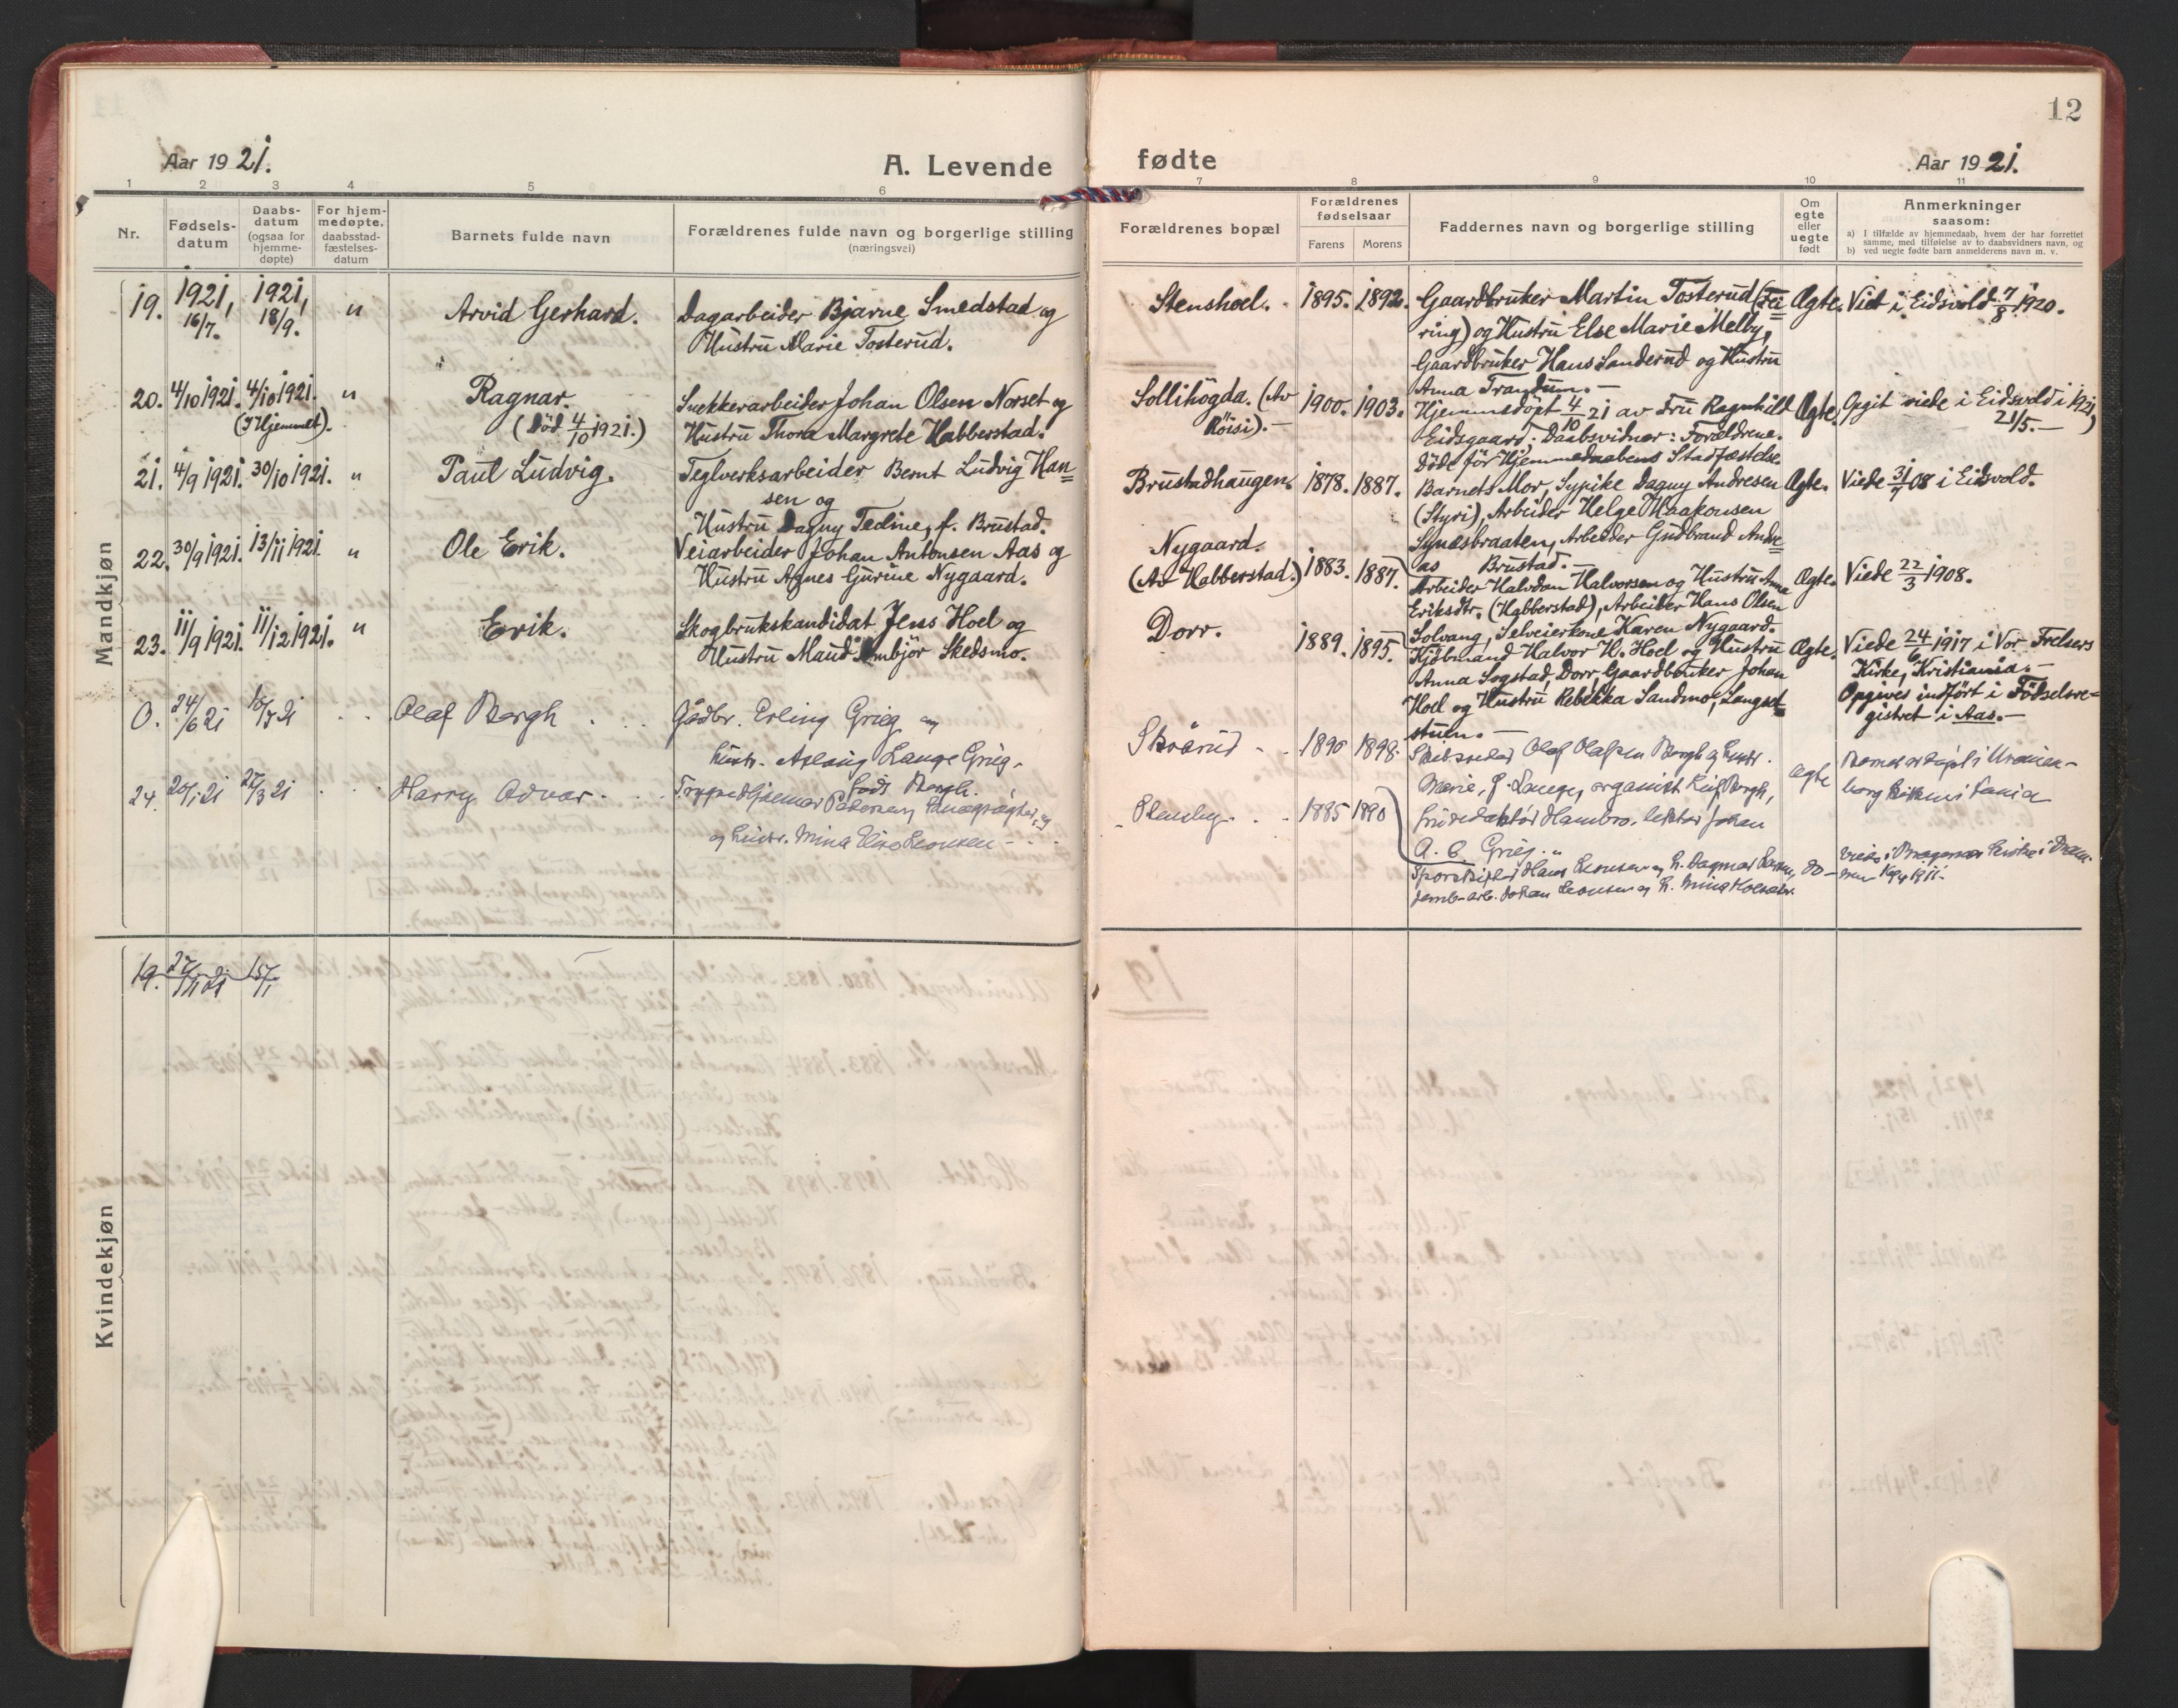 12
Aar 1921.
A. Levende
fødte
Aar 1921.
1 2 3 4 5 6 7 8 9 10 11
Nr.
Fødsels-
datum
Daabs-
datum
(ogsaa for
hjemme-
døpte)
For hjem-
medøpte,
daabsstad-
fæstelses-
datum
Barnets fulde navn
Forældrenes fulde navn og borgerlige stilling
(næringsvei)
Forældrenes bopæl
Forældrenes
fødselsaar
Farens Morens
Faddernes navn og borgerlige stilling
Om
egte
eller
uegte
født
Anmerkninger
saasom:
a) I tilfælde av hjemmedaab, hvem der har forrettet
samme, med tilføielse av to daabsvidners navn, og
b) ved uegte fødte barn anmelderens navn m. v.
Mandkjøn
19. 1921, 16/7. 1921, 18/9. " Arvid Gerhard.
Dagarbeider Bjarne Smedstad og
Hustru Marie Tosterud.
Stenshoel. 1895. 1892.
Gaardbruker Martin Tosterud (Fei=
ring) og Hustru Else Marie Melby,
Gaardbruker Hans Sanderud og Hustru
Anna Trandum. —
Ægte. Viet i Eidsvold 7/8 1920.
20. 4/10 1921. 4/10 1921. (I Hjemmet). " Ragnar.
(Död 4/10 1921.)
Snekkerarbeider Johan Olsen Norset og
Hustru Thora Margrete Habberstad.
Sollihögda. (Av
Röisi). — 1900. 1903.
Hjemmedöpt 4/10 21 av Fru Ragnhild
Eidsgaard; Daabsvidner: Forældrene.
Döde för Hjemmedaabens Stadfæstelse.
Ægte. Opgit viede i Eidsvold i 1921,
21/5. —
21. 4/9 1921. 30/10 1921. " Paul Ludvig.
Teglverksarbeider Bernt Ludvig Han=
sen og
Hustru Dagny Tedine, f. Brustad.
Brustadhaugen. 1878. 1887.
Barnets Mor, Sypike Dagny Andresen
(Styri), Arbeider Helge Haakonsen
Synæsbraaten, Arbeider Gudbrand Andre=
as Brustad. —
Ægte. Viede 31/7 08 i Eidsvold.
22. 30/9 1921. 13/11 1921. " Ole Erik.
Veiarbeider Johan Antonsen Aas og
Hustru Agnes Gurine Nygaard.
Nygaard.
(Av Habberstad.) 1883. 1887.
Arbeider Halvdan Halvorsen og Hustru Anna
Eriksdtr. (Habberstad), Arbeider Hans Olsen
Solvang, Selveierkone Karen Nygaard.
Ægte. Viede 22/3 1908.
23. 11/9 1921. 11/12 1921. " Erik.
Skogbrukskandidat Jens Hoel og
Hustru Maud Ambjör Skedsmo.
Dorr. 1889. 1895.
Kjöbmand Halvor H. Hoel og Hustru
Anna Sogstad, Dorr, Gaardbruker Johan
Hoel og Hustru Rebekka Sandmo, Langset=
stuen. —
Ægte. Viede 24/6 1917 i Vor Frelsers
Kirke, Kristiania. —
Opgives indfört i Födselsre=
gistret i Aas. —
0. 24/6 21 Olaf Borgh
Gådbr. Erling Grieg og
hustr. Aslaug Lange Grieg,
født Borgh.
1890 1898
Olaf Olafsen Borgh og hustr.
Marie, f. Lange, organist Leif Borgh,
Hambro, lektor Johan
A. B. Grieg.
ægte Barnet er døpt i Uranien-
borg
24. 21 21 Harry Advar
Hjalmar Pedersen
og hustr. Mina Elise Leonsen
Stensby 1895 1890
Hans Leonsen og h. Dagmar
Johan Leonsen og h. Mina
do Viede i Bragernes kirke i Dram-
men 1911.
Kvindekjøn
19. 27/11 21 15/1